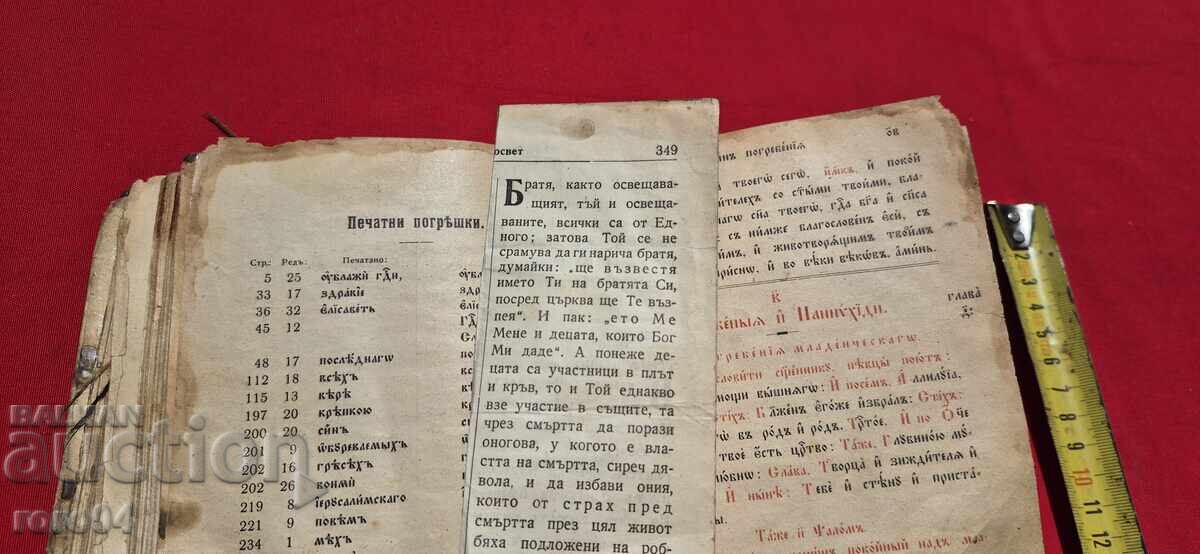 Печатни погрѣшки.
Стр.: Редъ: Печатано:
5 25 оублажи гди,
33 17 здравіе
36 32 елісаветь
45 12
48 17 послѣднагѡ
112 18 всѣхъ
115 13 вѣрѣ
197 20 крѣпкою
200 20 синъ
201 9 ѡбореваемыхъ
202 16 грѣсехъ
202 26 вонми
219 8 іерѹсалімскаго
221 9 повѣмъ
234 1 мѣхъ
освет 349
Братя, както освещава-
щият, тъй и освеща-
ваните, всички са от Ед-
ного; затова Той се не
срамува да ги нарича братя,
думайки: „ще възвестя
името Ти на братята Си,
посред църква ще Те въз-
пея“. И пак: „ето Ме
Мене и децата, които Бог
Ми даде“. А понеже де-
цата са участници в плът
и кръв, то и Той еднакво
взе участие в същите, та
чрез смъртта да порази
оногова, у когото е вла-
стта на смъртта, сиреч дя-
вола, и да избави ония,
които от страх пред
смъртта през цял живот
бяха подложени на роб-
погребенія ов
твоегѡ сегѡ, имкъ. И покой
ителехъ со стыми твоими, бла-
нагѡ сна твоегѡ, гда бга и спса
съ нимже благословенъ еси, съ
и животворящимъ твоимъ
присно, и во вѣки вѣковъ, аминь.
глава
и Паннѵхіди.
погребенія младенческагѡ.
сщенникѹ, пѣвцы поютъ:
помощи вышнягѡ: И посемъ. Аллилѹіа,
стіхъ: Блаженъ егоже избралъ: Стіхъ:
въ родъ и родъ. Трстое: И по Оче
твое есть црство: Таже, Глѹбиною мѹ-
Слава. Творца и зиждителя и
И нынѣ: Тебе и стѣнѹ и приста-
Таже и Ѱаломъ.
BALKAN
auction
roro94
2 3 4 5 6 7 8 9 10 11 12